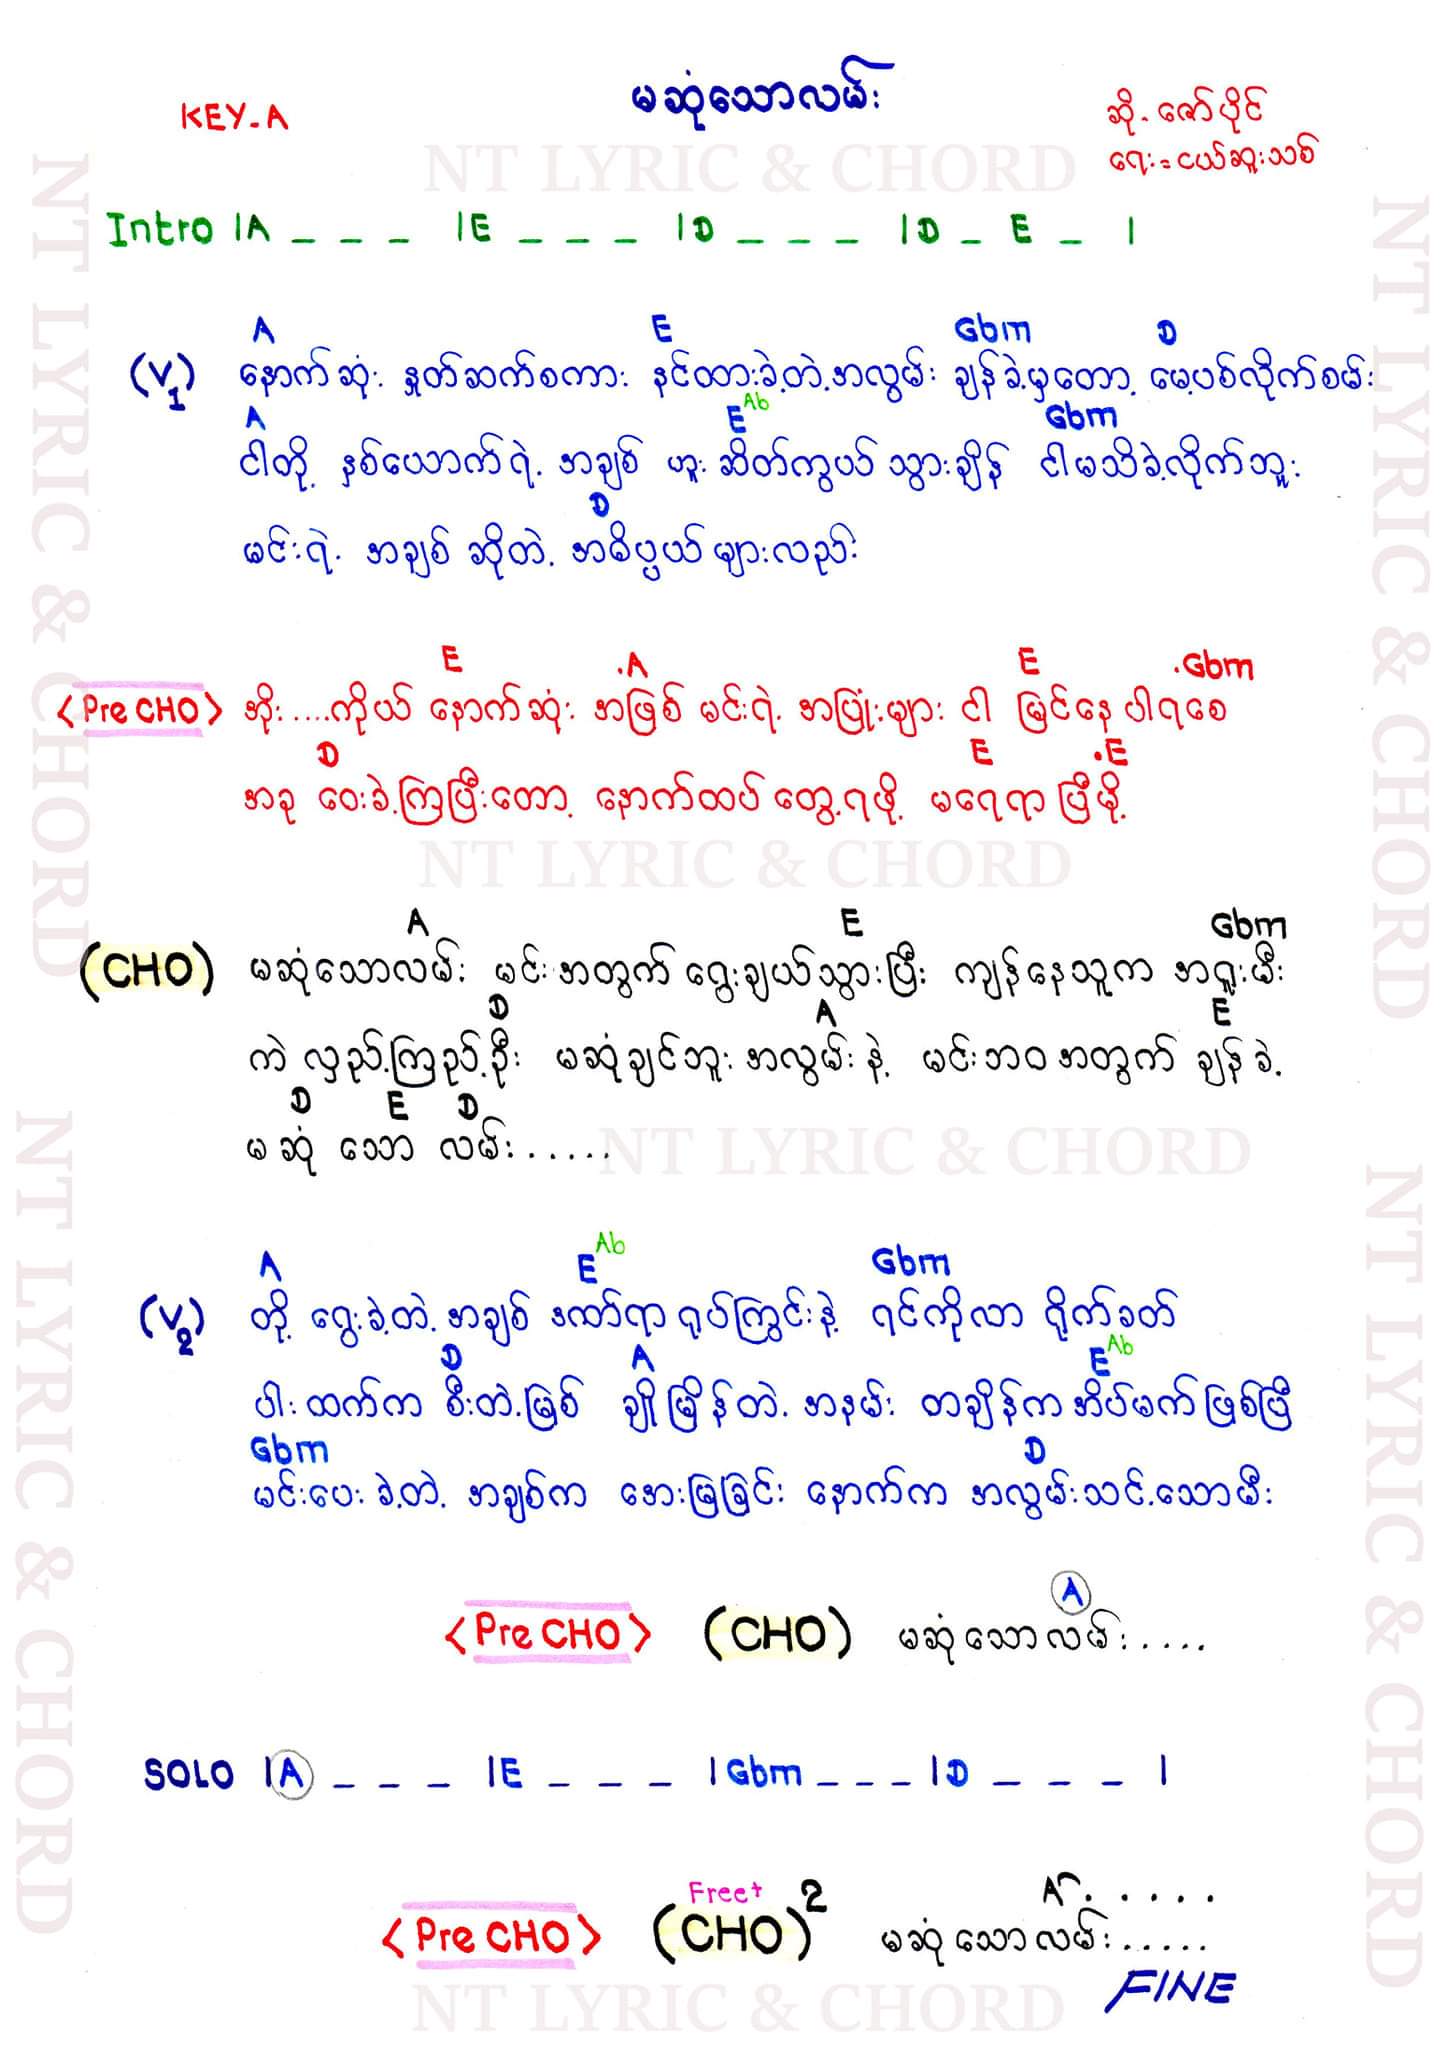 မဆုံးသောလမ်း
KEY-A
ဆို - ဇော်ပိုင်
ရေး = ငယ်ဆူးသစ်
NT LYRIC & CHORD
Intro |A _ _ _ |E _ _ _ |D _ _ _ |D _ E _ |
A E Gbm D
(V1) နောက်ဆုံး နှုတ်ဆက်စကား နင်ထားခဲ့တဲ့အလွမ်း ချန်ခဲ့မှတော့ မေ့ပစ်လိုက်စမ်း
A E Ab Gbm
ငါတို့ နှစ်ယောက်ရဲ့ အချစ် ဟူး ဆိတ်ကွယ် သွားချိန် ငါမသိခဲ့လိုက်ဘူး
D
မင်းရဲ့ အချစ် ဆိုတဲ့ အဓိပ္ပယ် များလည်း
E .A E .Gbm
<Pre CHO> အိုး ....ကိုယ် နောက်ဆုံး အဖြစ် မင်းရဲ့ အပြုံးများ ငါ မြင်နေ ပါရစေ
D E .E
အခု ဝေးခဲ့ကြပြီးတော့ နောက်ထပ် တွေ့ရဖို့ မရေရာ ပြီမို့
NT LYRIC & CHORD
A E Gbm
(CHO) မဆုံးသောလမ်း မင်းအတွက် ရွေးချယ်သွားပြီး ကျန်နေသူက အရူးမီး
D A E
ကဲ လှည့်ကြည့်ဦး မဆုံချင်ဘူး အလွမ်းနဲ့ မင်းဘဝအတွက် ချန်ခဲ့
D E D
မဆုံ သော လမ်း . . . . .
NT LYRIC & CHORD
A E Ab Gbm
(V2) တို့ ရွေးခဲ့တဲ့ အချစ် ဒဏ်ရာ ရုပ်ကြွင်းနဲ့ ရင်ကိုလာ ရိုက်ခတ်
D A E Ab
ပါးထက်က စီးတဲ့မြစ် ချိုမြိန်တဲ့ အနမ်း တချိန်က အိပ်မက်ဖြစ်ပြီ
Gbm D
မင်းပေးခဲ့တဲ့ အချစ်က အေးမြခြင်း နောက်က အလွမ်းသင့်သောမီး
A
<Pre CHO> (CHO) မဆုံသောလမ်း . . . .
SOLO |A _ _ _ |E _ _ _ |Gbm _ _ _ |D _ _ _ |
Free+ A . . . . .
<Pre CHO> (CHO)2 မဆုံသောလမ်း . . . . .
FINE
NT LYRIC & CHORD
NT LYRIC & CHORD
NT LYRIC & CHORD
NT LYRIC & CHORD
NT LYRIC & CHORD